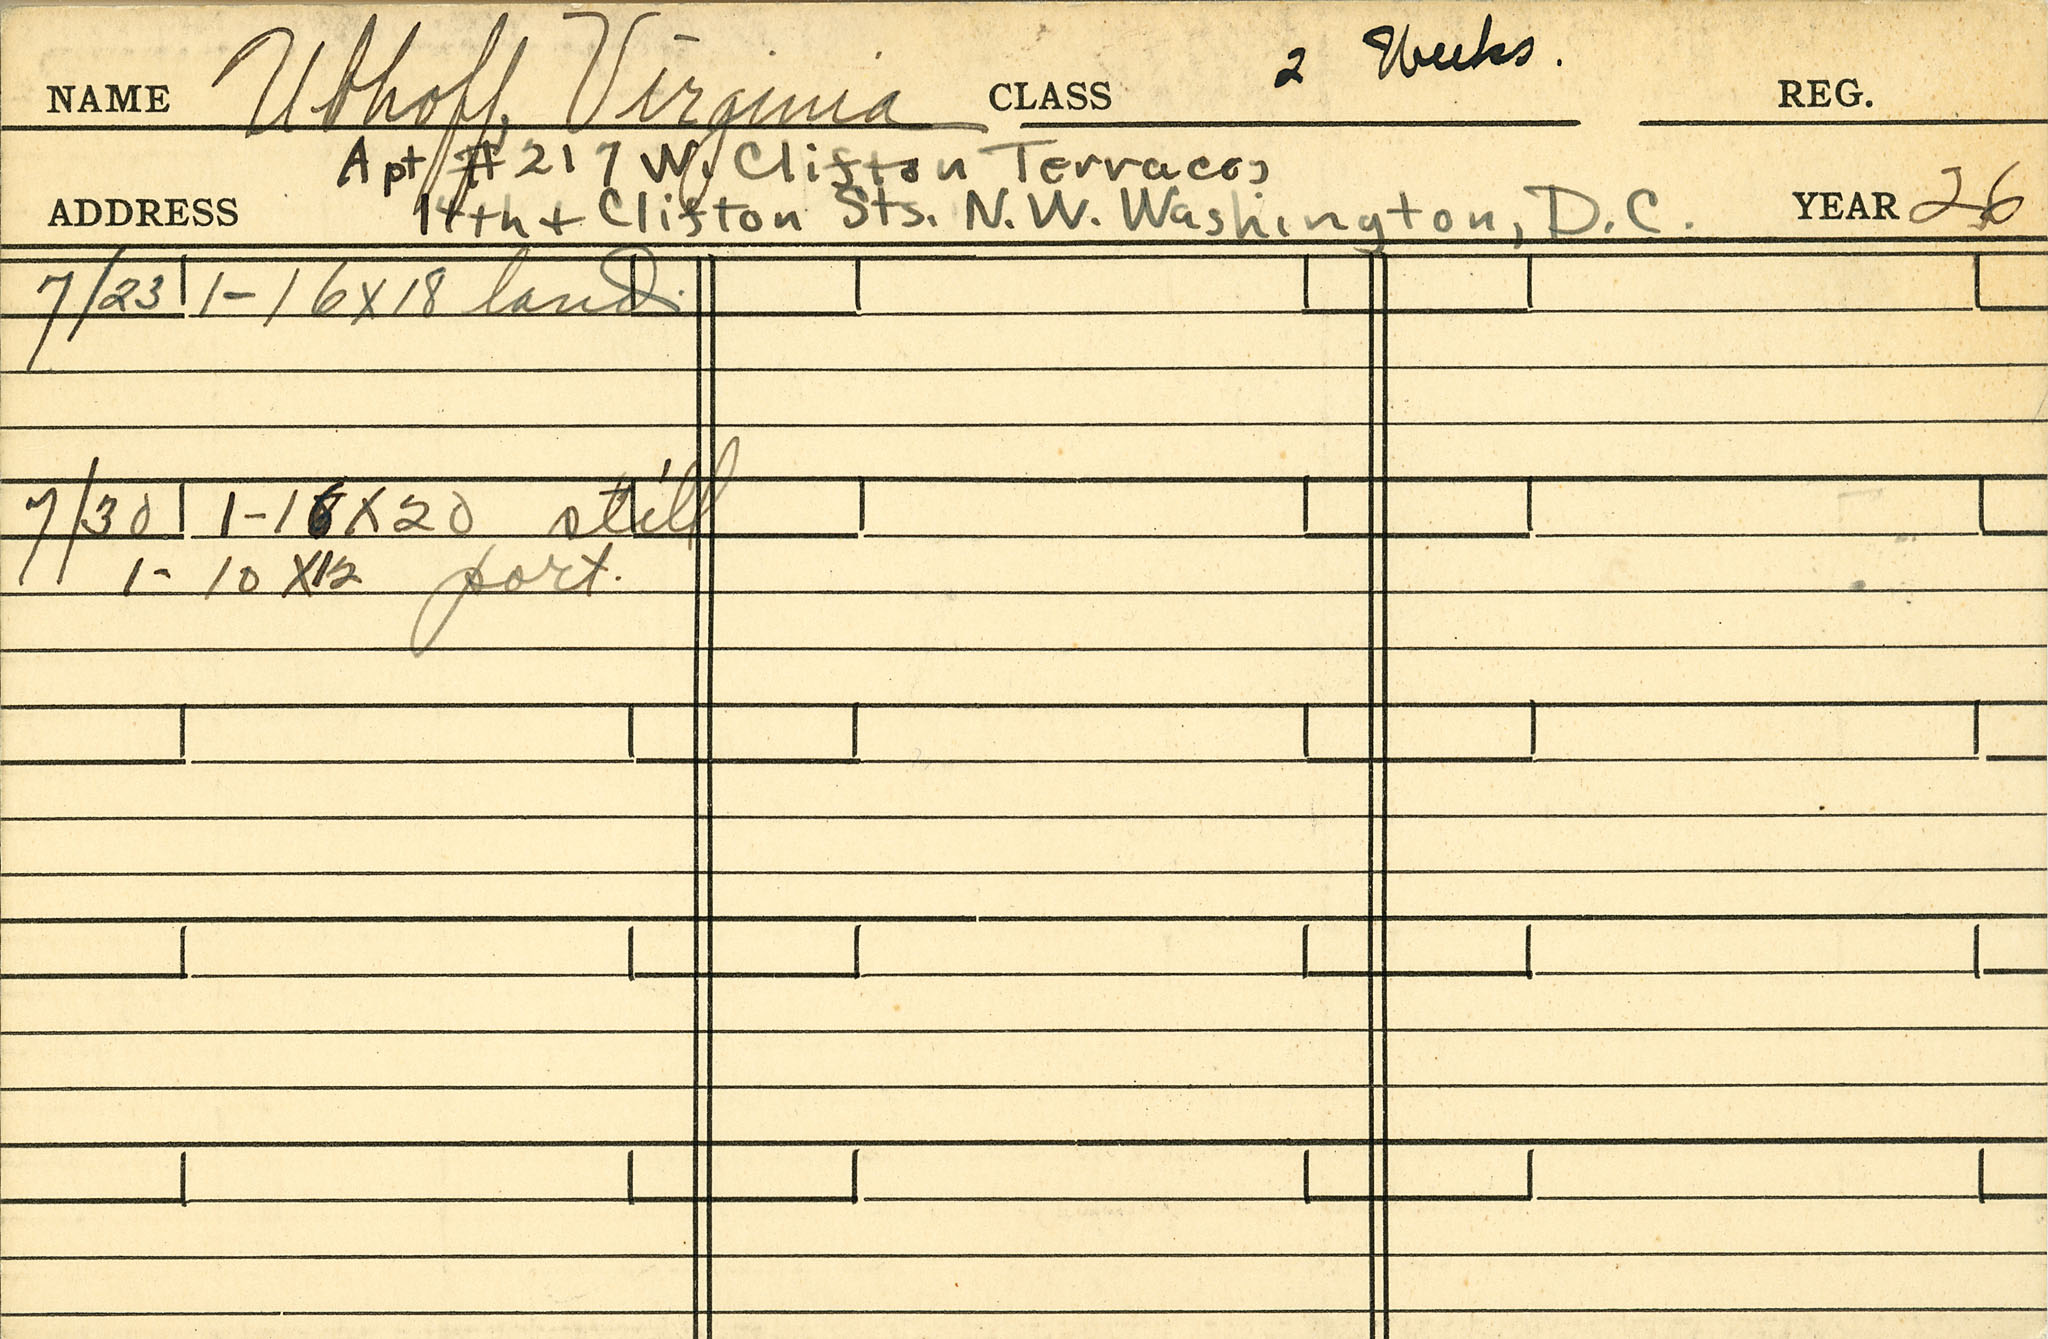 NAME Ubhoff, Virginia CLASS 2 Weeks. REG.
Apt #217 W. Clifton Terraces
ADDRESS 14th + Clifton Sts. N.W. Washington, D.C. YEAR 26
7/23 1-16x18 land.
7/30 1-16x20 still
1-10x12 port.